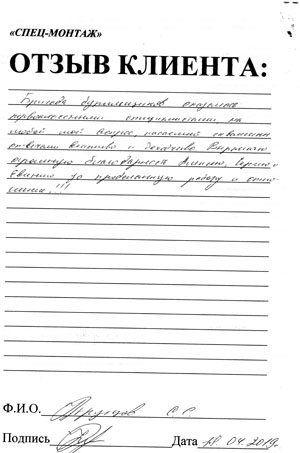 «СПЕЦ-МОНТАЖ»
ОТЗЫВ КЛИЕНТА:
Бригада бурильщиков оказалась
первоклассными специалистами, на
любой мой вопрос, касаемый скважины
отвечали вежливо и доходчиво Выражаю
огромную благодарность Сергею и
Евгению за проделанную работу и отно-
шение!!!
Ф.И.О. С.С.
Подпись Дата 04.2019.